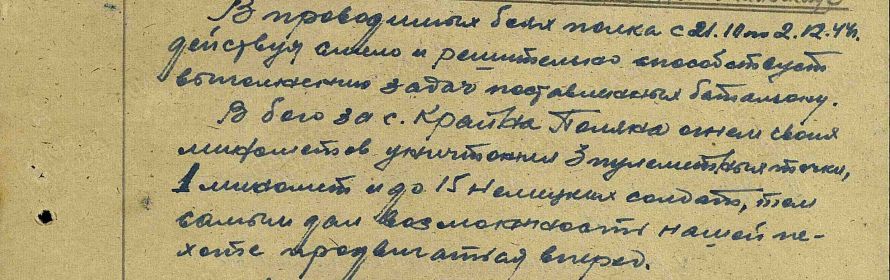 В проводимых боях полка с 21.10 по 2.12.44г.
действуя смело и решительно способствует
выполнению задач поставленных батальону.
В бою за с. Крайна Поляна огнем своих
минометов уничтожил 3 пулеметных точки,
1 миномет и до 15 немецких солдат, тем
самым дал возможность нашей пе-
хоте продвигаться вперед.